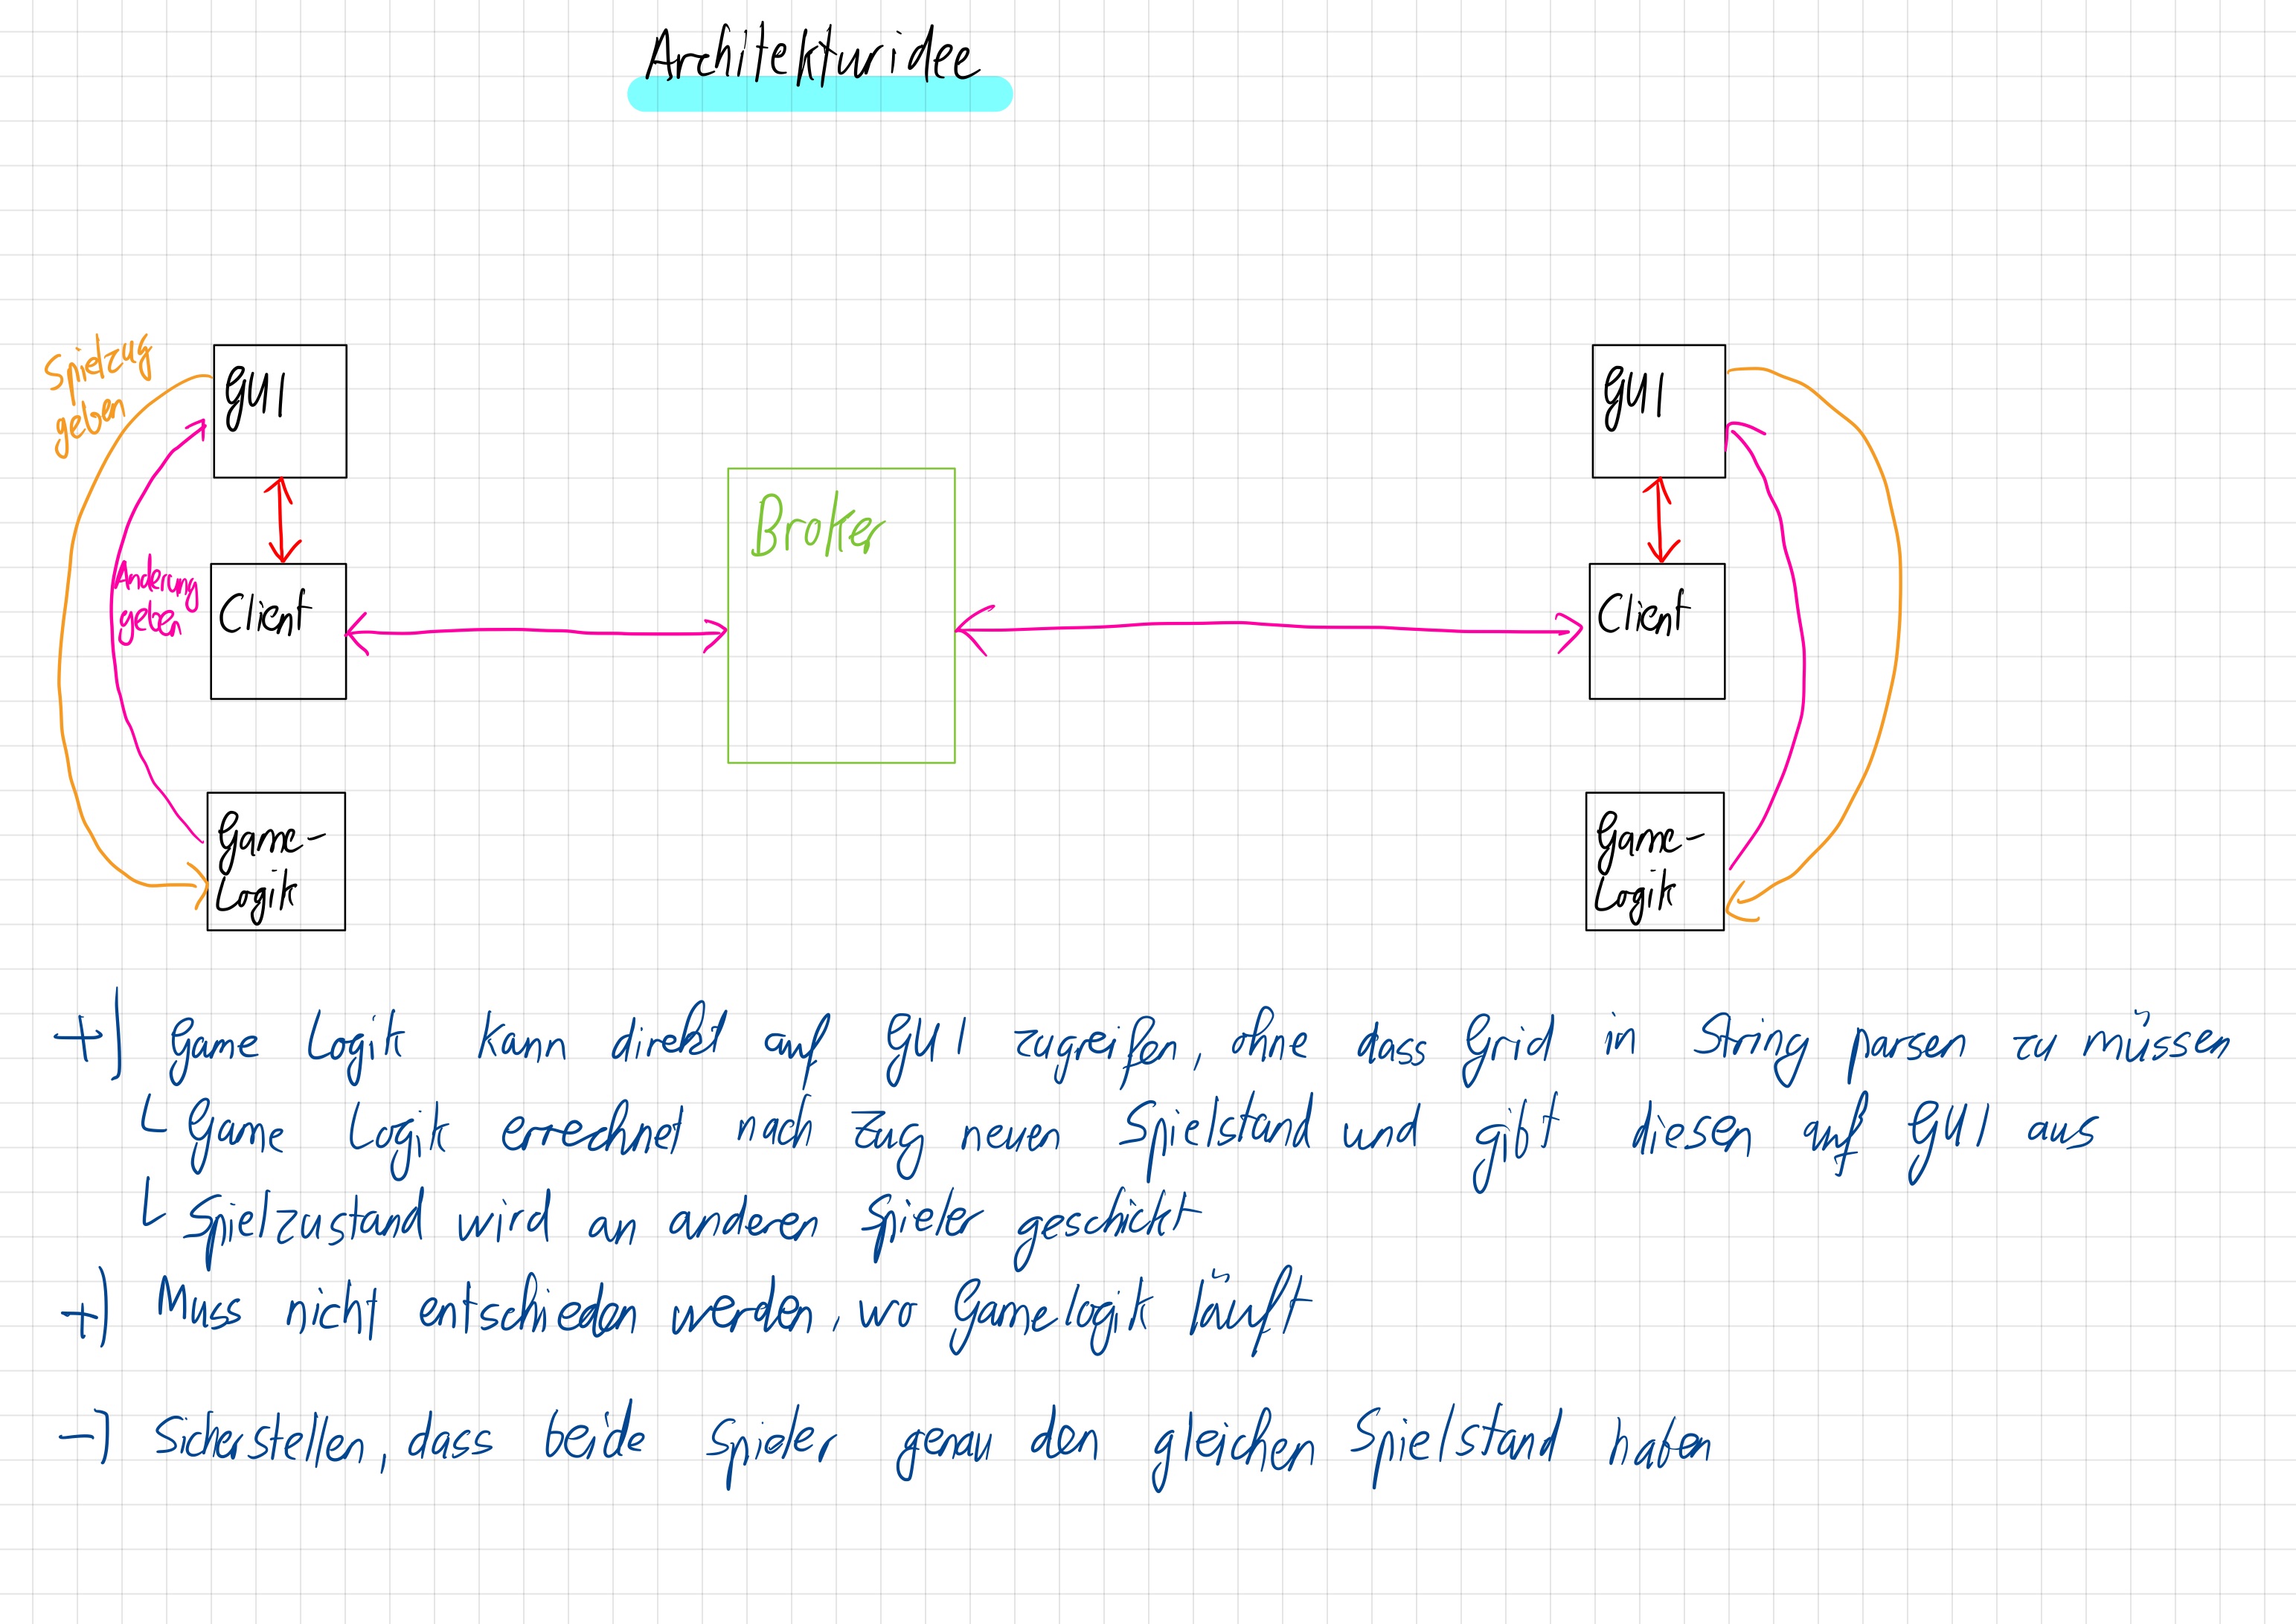 Architekturidee
Spielzug
geben
GUI
GUI
Broker
Änderung
geben
Client
Client
Game-
Logik
Game-
Logik
+) Game Logik kann direkt auf GUI zugreifen, ohne dass Grid in String parsen zu müssen
└ Game Logik errechnet nach Zug neuen Spielstand und gibt diesen auf GUI aus
└ Spielzustand wird an anderen Spieler geschickt
+) Muss nicht entschieden werden, wo Gamelogik läuft
-) Sicherstellen, dass beide Spieler genau den gleichen Spielstand haben